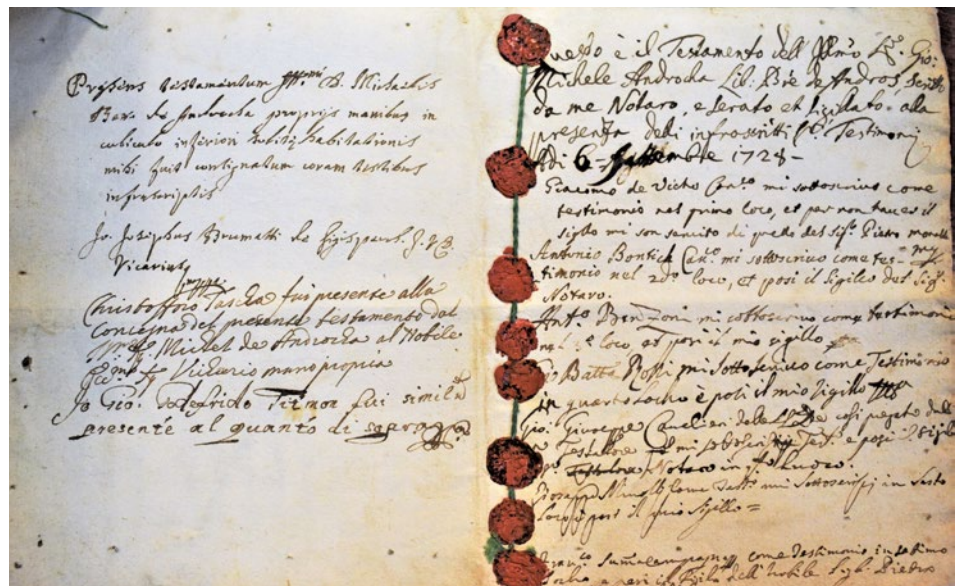 Præsens testamentum Ill.mi D. Michaelis
Bar. de Androcha proprijs manibus in
cubiculo inferiori habitationis
mihi fuit consignatum coram testibus
infrascriptis
Jo. Josephus Brumatti de
Vicarius
Christofforo Tascha fui presente alla
Consegna del presente testamento dal
Michel de Androcha al Nobile
Vicario mano propria
Io Gio. fui
presente al quanto di sopra
Questo è il Testamento dell Illmo Gio:
Michele Androcha Lib. Bre de Andros, scritto
da me Notaro, e serato et sigilato alla
presenza delli infrascritti Testimonij
Adi 6 Settembre 1728
Giacomo de Victo mi sottoscrivo come
testimonio nel primo loco, et per non haver il
sigillo mi son servito di quello del Sigr. Pietro
Antonio Bontich mi sottoscrivo come tes-
timonio nel 2do. loco, et posi il Sigilo del Sigr.
Notaro.
Anto. Benzoni mi sottoscrivo come testimonio
loco et posi il mio sigillo
Batta Rossi mi sottoscrivo come Testimonio
in quarto locho è posi il mio Sigillo
Gio. Giuseppe così pregato dalle
Testatore mi sottoscrivo e posi il Sigillo
Notaro in Luoco.
Come mi sottoscrissi in sesto
posi il mio Sigillo
come Testimonio in setimo
dell Nobile Sigr. Pietro